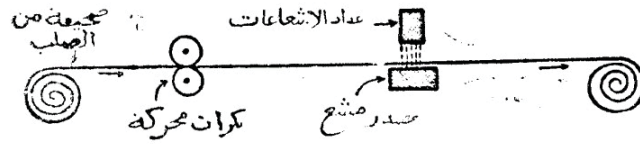 صحيفة من
الصلب
عداد الاشعاعات
بكرات محركة
مصدر مشع